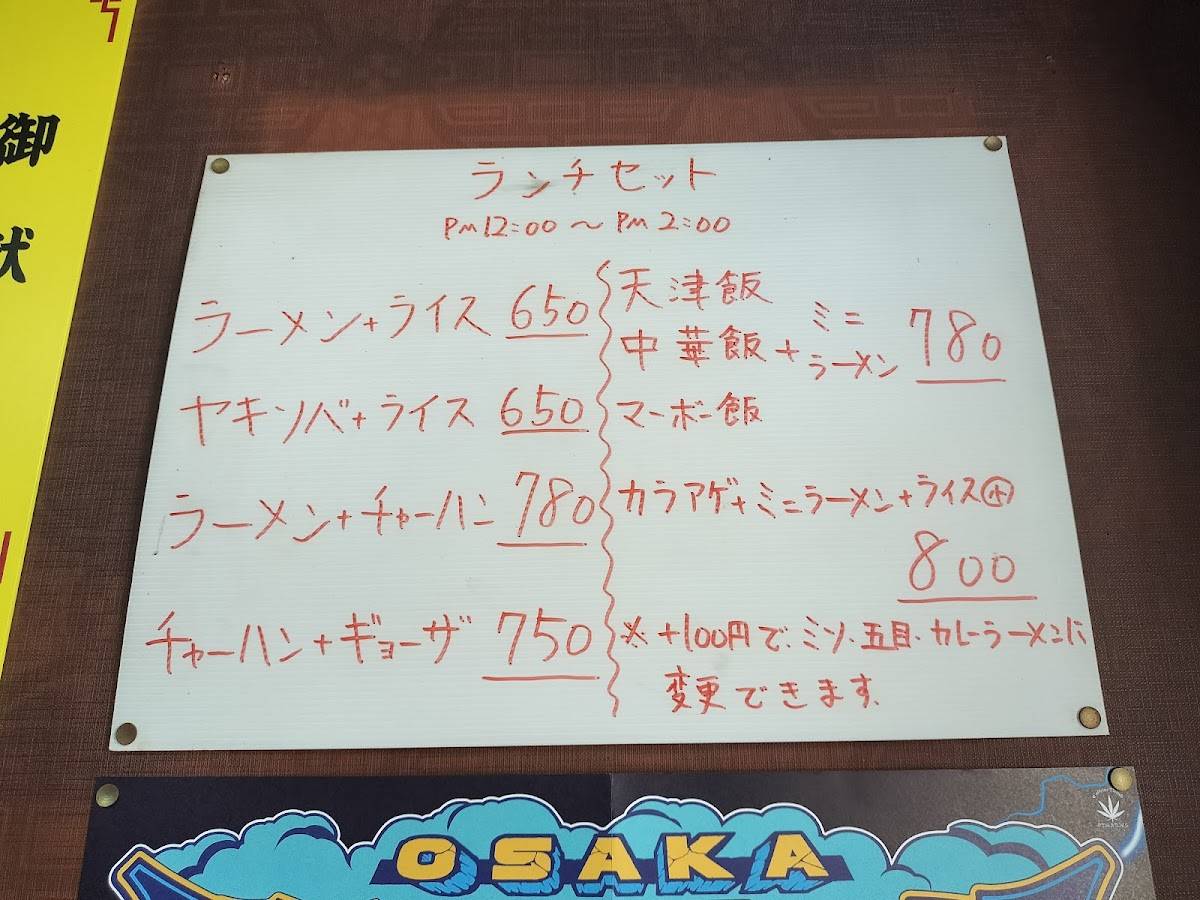 御
状
ランチセット
PM12:00～PM2:00
ラーメン+ライス 650
ヤキソバ+ライス 650
ラーメン+チャーハン 780
チャーハン+ギョーザ 750
天津飯
中華飯+ミニラーメン 780
マーボー飯
カラアゲ+ミニラーメン+ライス㊥
800
※+100円で、ミソ・五目・カレーラーメンに
変更できます。
OSAKA